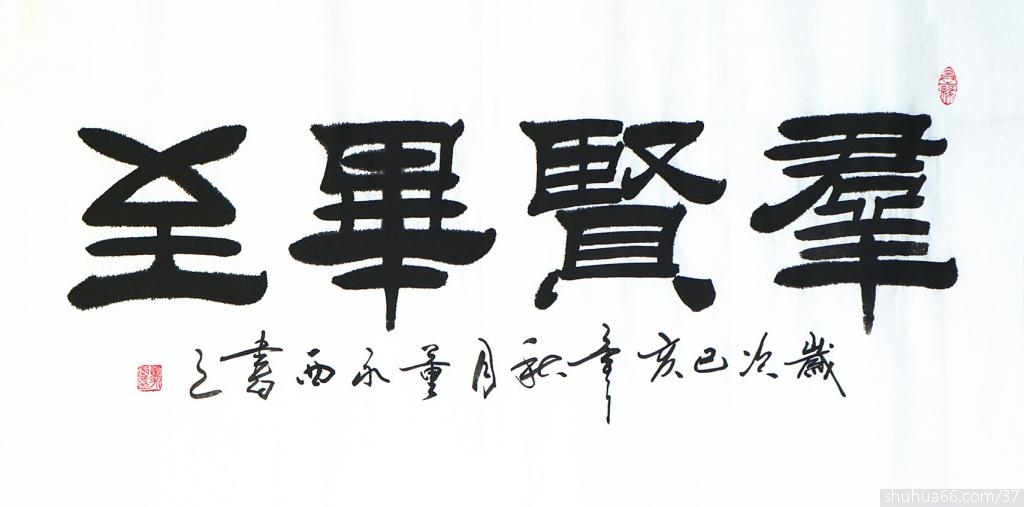 羣賢畢至
歲次己亥年秋月董永西書之
shuhua66.com/37